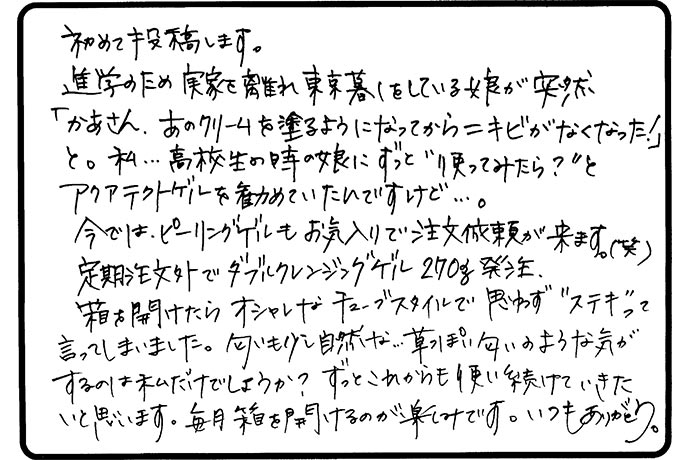 初めて投稿します。
進学のため実家を離れ東京暮しをしている娘が突然
「かあさん、あのクリームを塗るようになってからニキビがなくなった!」
と。私…高校生の時の娘にずっと"使ってみたら?"と
アクアテクトゲルを勧めていたんですけど…。
今では、ピーリングゲルもお気入りで注文依頼が来ます。(笑)
定期注文外でダブルクレンジングゲル270g発注、
箱を開けたらオシャレなチューブスタイルで思わず"ステキ"って
言ってしまいました。匂いも少し自然な…草っぽい匂いのような気が
するのは私だけでしょうか?ずっとこれからも使い続けていきた
いと思います。毎月箱を開けるのが楽しみです。いつもありがとう。